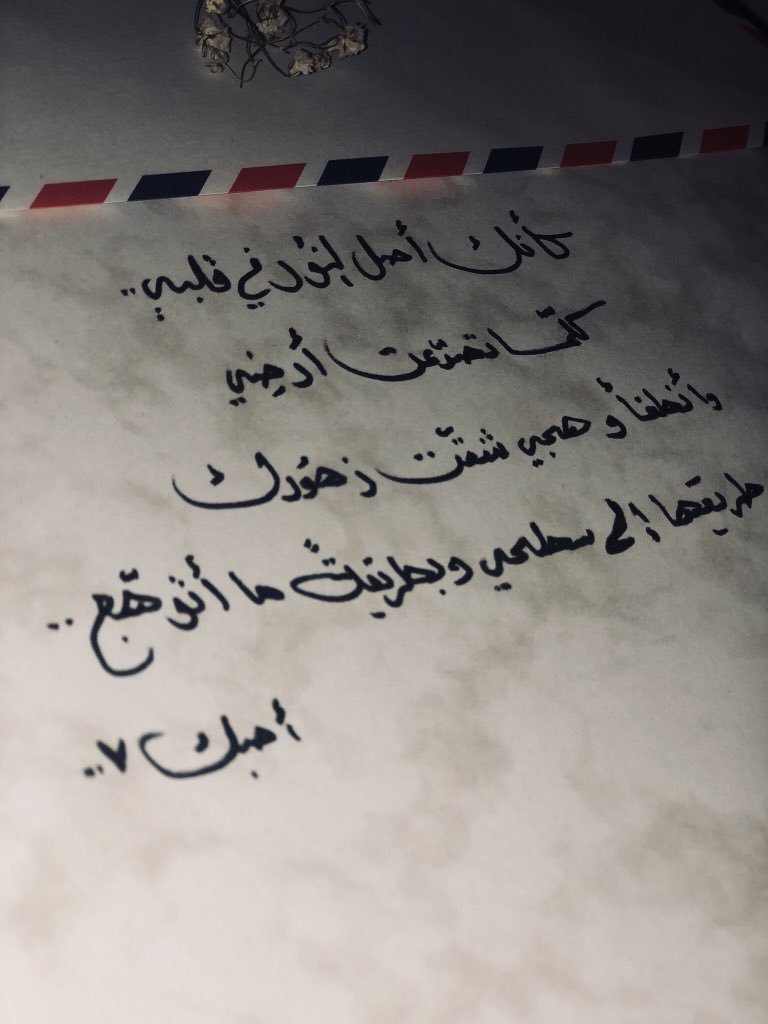 كأنك أصل النور في قلبي..
كلّما تصدّعت أرضِي
وأنطفأ وهجي شقّت زهورك
طريقها إلى سطحي وبطريقةٍ ما أتوهّج..
أحبك ٧..